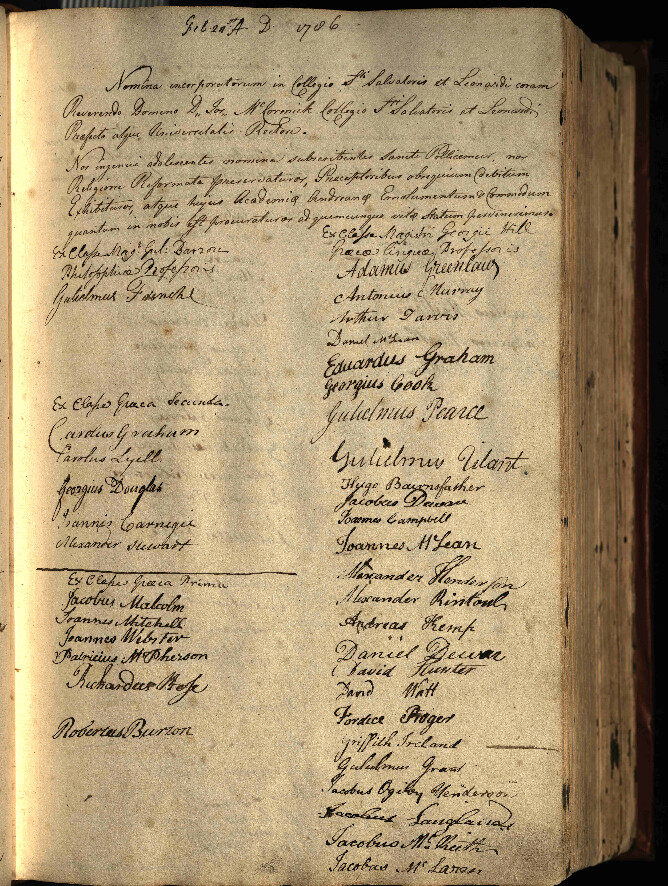 Feb 24 A. D. 1786
Nomina incorporatorum in Collegio Sti Salvatoris et Leonardi coram
Reverendo Domino D. Jos. McCormick Collegii Sti Salvatoris et Leonardi
Præfecto atque Universitatis Rectore.
Nos ingenui adolescentes nomina subscribentes sancte Pollicemur, nos
Religionem Reformatam preservaturos, Præceptoribus obsequium debitum
Exhibituros, atque hujus Academiæ Andreanæ Emolumentum & Commodum
quantum in nobis est procuraturos ad quemcunque vitæ statum pervenerimus
Ex Classe Magi Gul. Barron
Philosophiæ Professoris
Gulielmus French
Ex Classe Græca Secunda
Carolus Graham
Carolus Lyell
Georgius Douglas
Joannis Carnegie
Alexander Stewart
Ex Classe Græca Prima
Jacobus Malcolm
Joannes Mitchell
Joannes Webster
Patricius McPherson
Richardus Rose
Robertus Burton
Ex Classe Magistri Georgii Hill
Græcæ Linguæ Professoris
Adamus Greenlaw
Antonius Murray
Arthur Jarvis
Daniel McLean
Eduardus Graham
Georgius Cook
Gulielmus Pearce
Gulielmus Tilant
Hugo Bairnsfather
Jacobus Dewar
Joannes Campbell
Joannes McLean
Alexander Henderson
Alexander Rintoul
Andreas Kemp
Daniel Dewar
David Hunter
David Watt
Fordice Froger
Griffith Ireland
Gulielmus Grant
Jacobus Ogilvy Henderson
Jacobus Langlands
Jacobus McBeith
Jacobus McLaren